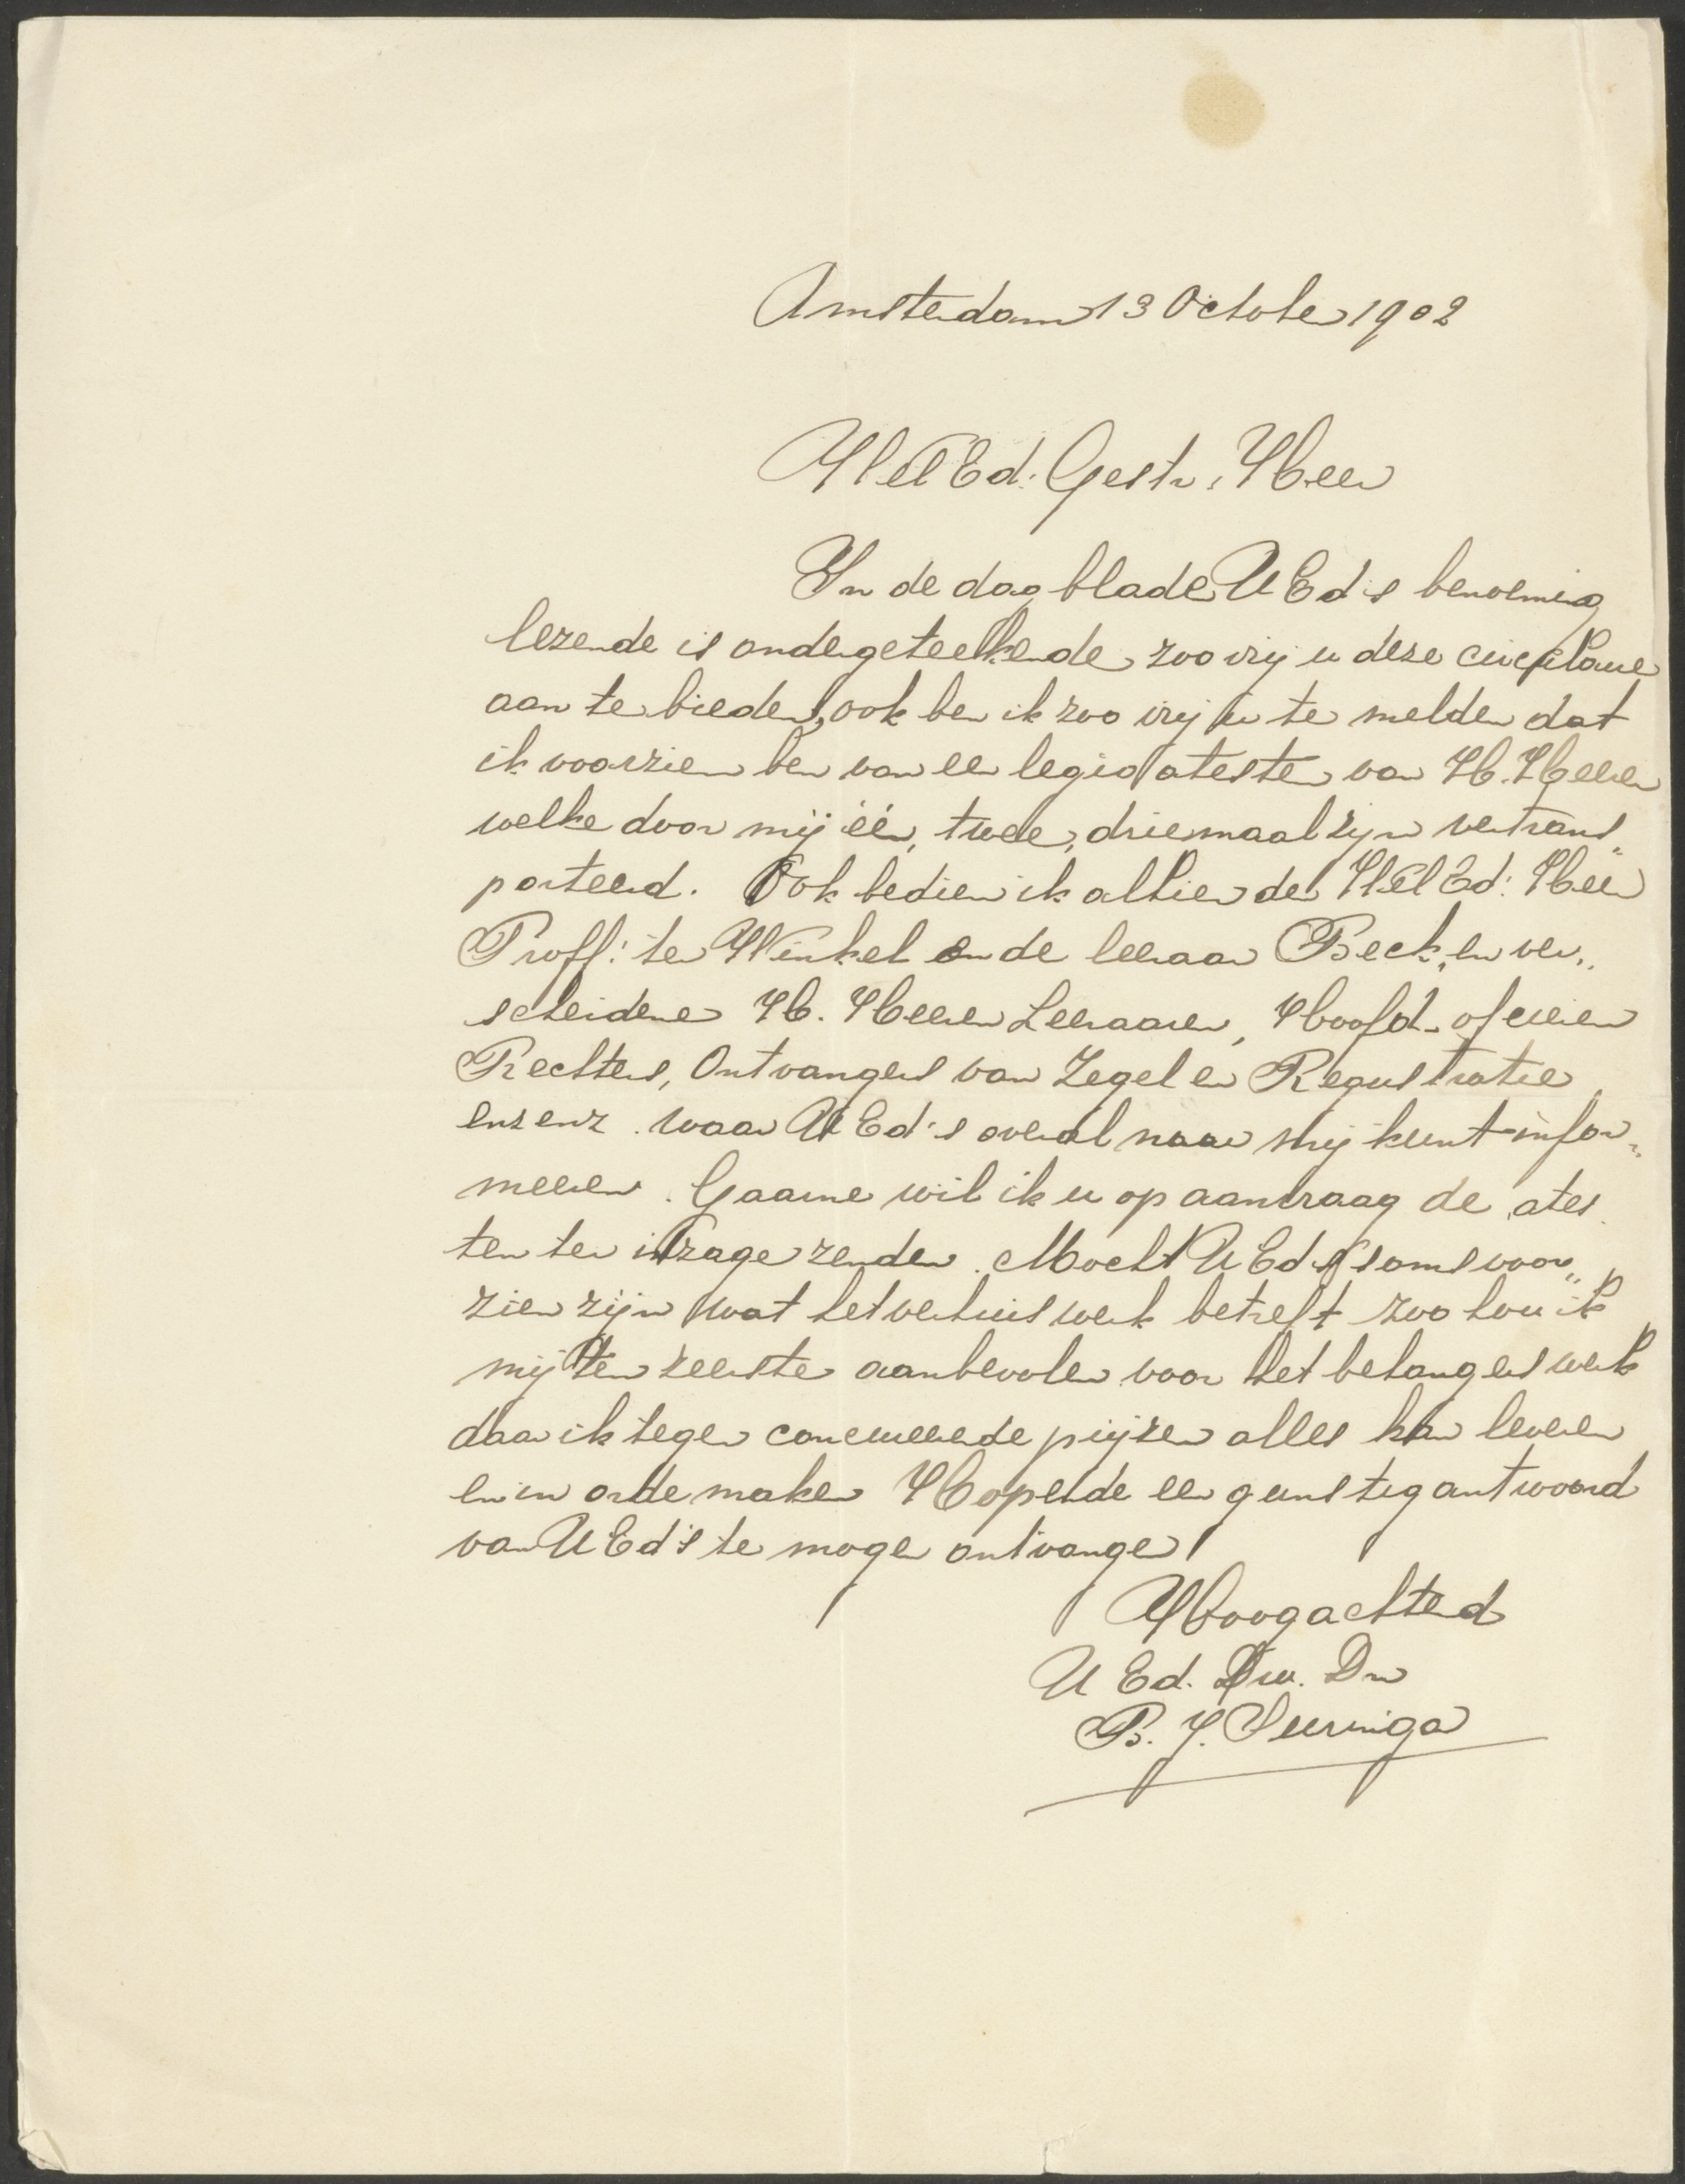 Amsterdam 13 October 1902
WelEd. Gestr. Heer
In de dagblade UEd's benoeming
lezende is ondergeteekende zoo vrij u deze circulaire
aan te bieden, ook ben ik zoo vrij u te melden dat
ik voorzien ben van een legio atesten van H. Heeren
welke door mij één, twee, driemaal zijn vertrans„
porteerd. Ook bedien ik alhier den WelEd: Heer
Proff: te Winkel en de leeraar Beck, en ver„
scheidene H. Heeren Leeraaren, Hoofd-officieren
Rechters, Ontvangers van Zegel en Registratie
enz enz. waar UEd's overal naar mij kunt infor„
meeren. Gaarne wil ik u op aanvraag de ates
ten ter inzage zenden. Mocht UEd's soms voor„
zien zijn wat het verhuiswerk betreft zoo hou ik
mij ten zeerste aanbevolen voor het behangers werk
daar ik tegen concureerende prijzen alles kan leveren
en in orde maken Hopende een gunstig antwoord
van UEd's te mogen ontvangen
Hoogachtend
U Ed. Dw. Dr
B. J. Suringa